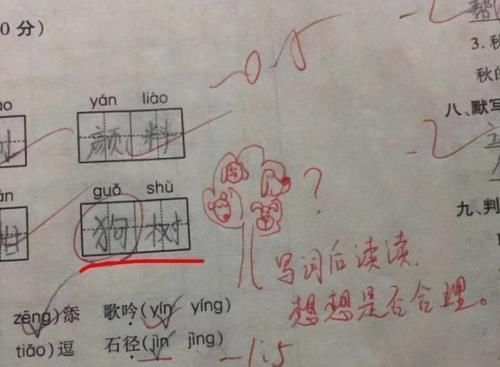 0 分）
-0.5
3. 秋
秋的
yán liào
颜料
八、默写
-2
guǒ shù
狗树
?
九、判
写词后读读,
想想是否合理。
zēng)添 歌吟(yín yíng)
tiǎo)逗 石径(jìn jìng)
-1.5